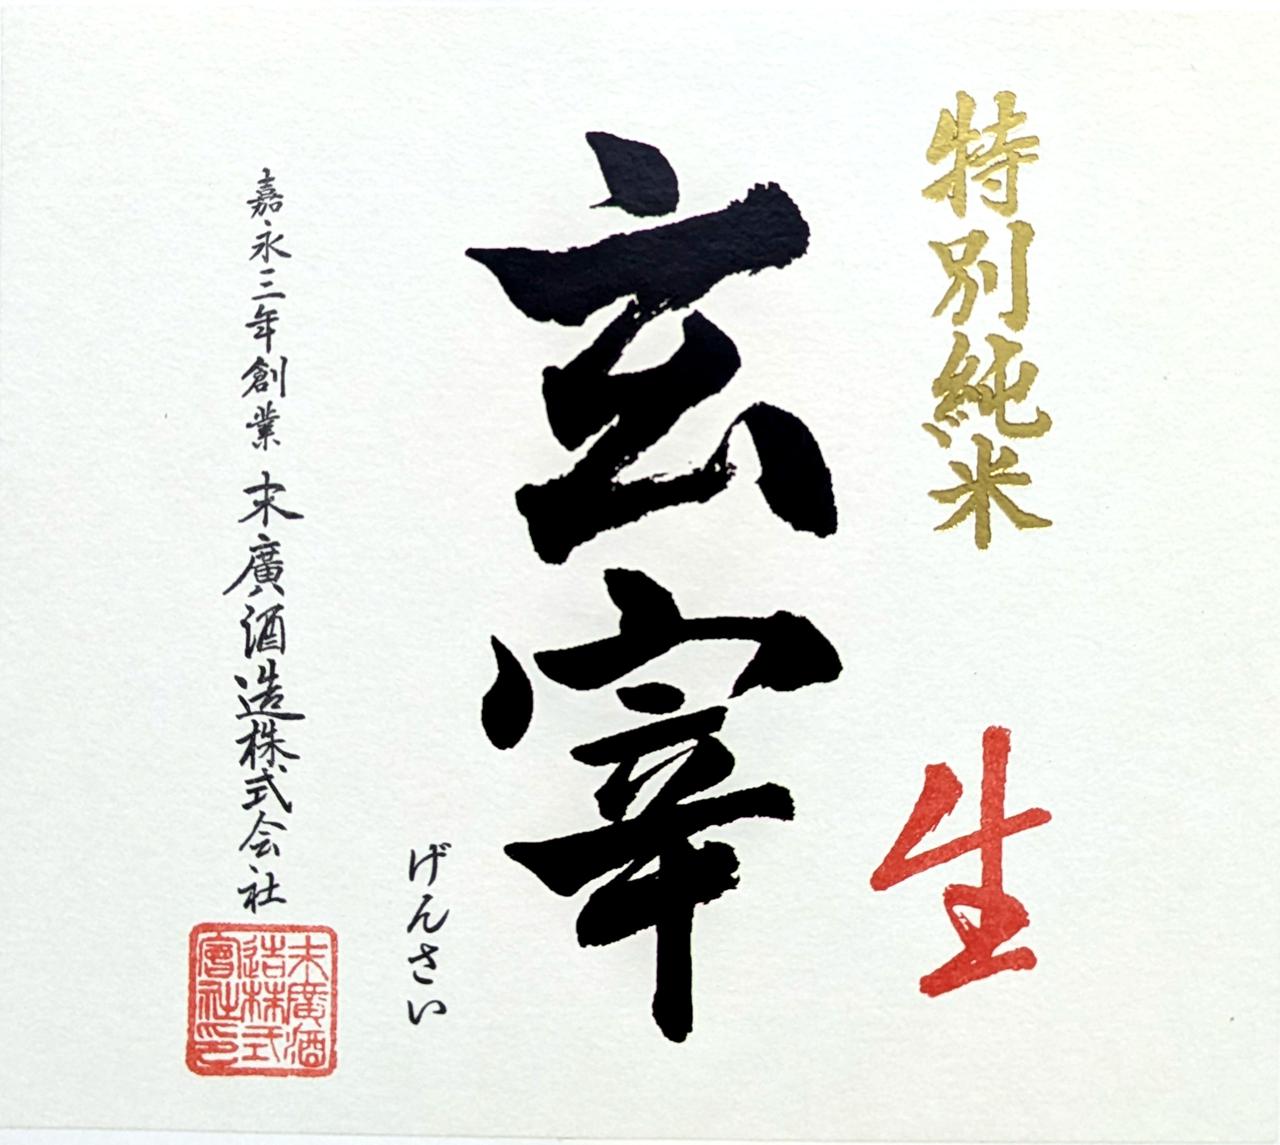 特別純米
生
玄宰
げんさい
嘉永三年創業 末廣酒造株式会社
末廣酒
造株式
會社印